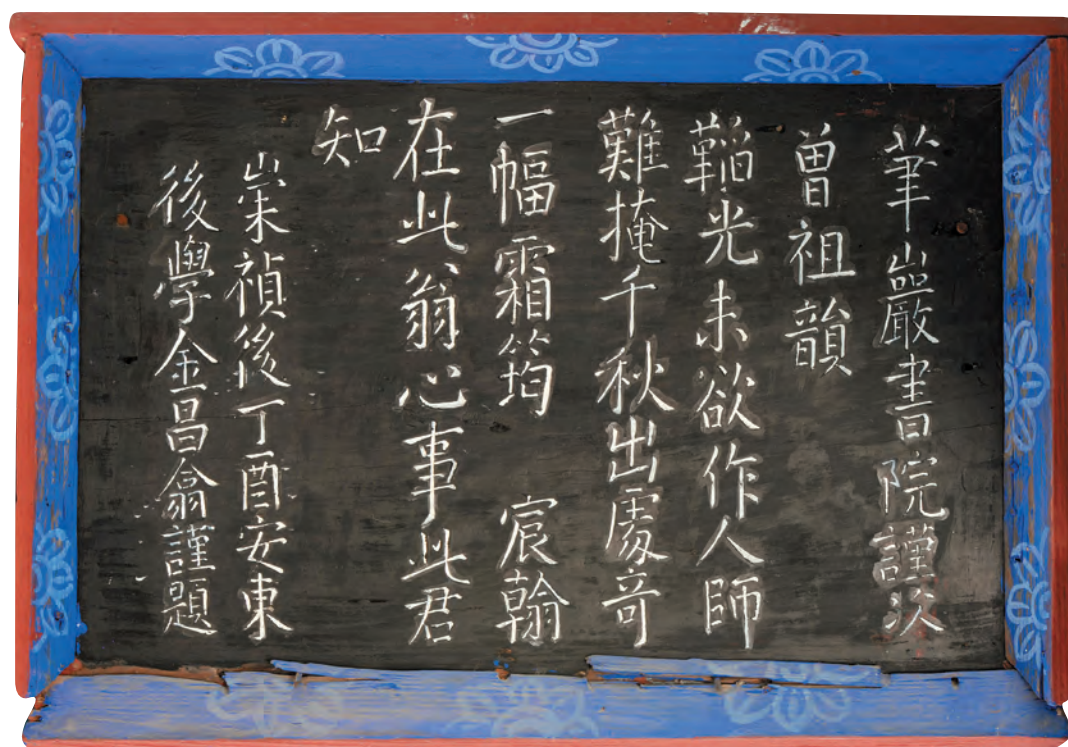 筆巖書院謹次
曾祖韻
鞱光未欲作人師
難掩千秋出處竒
一幅霜筠　宸翰
在此翁心事此君
知
崇禎後丁酉安東
後學金昌翕謹題